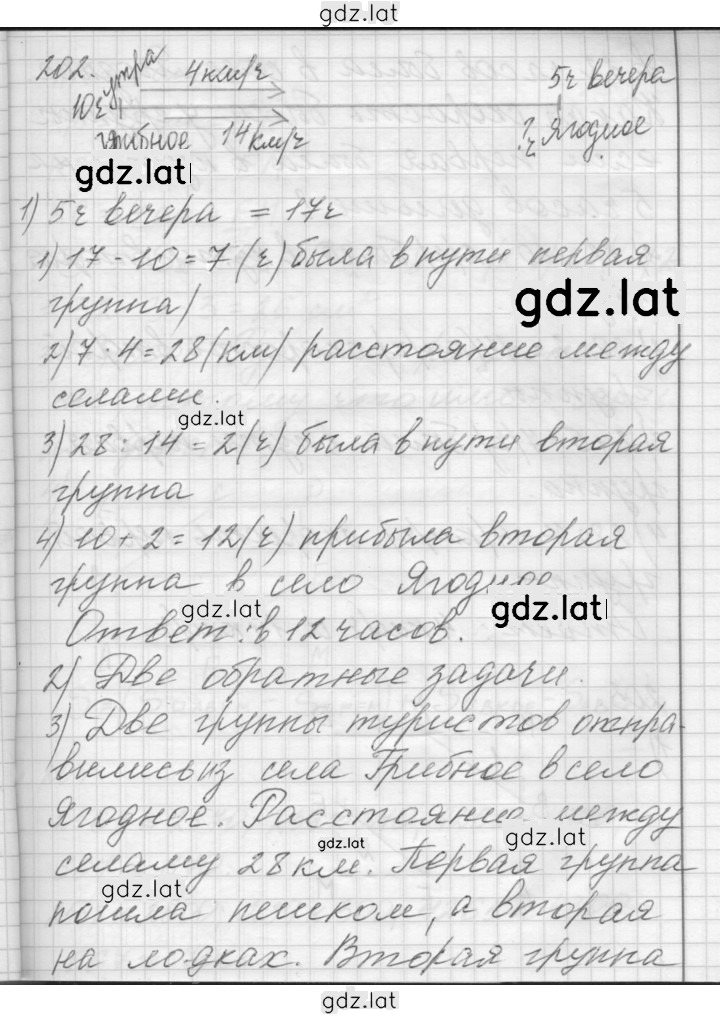 gdz.lat
202. утра 4км/ч 5ч вечера
10ч
Грибное 14км/ч ?ч Ягодное
gdz.lat
1) 5ч вечера = 17ч
1) 17 - 10 = 7 (ч) была в пути первая
gdz.lat
группа)
2) 7 · 4 = 28 (км) расстояние между
селами.
gdz.lat
3) 28 : 14 = 2 (ч) была в пути вторая
группа
4) 10 + 2 = 12 (ч) прибыла вторая
группа в село Ягодное
gdz.lat gdz.lat
Ответ: в 12 часов.
2) Две обратные задачи.
3) Две группы туристов отпра-
вились из села Грибное в село
Ягодное. Расстояние между
gdz.lat gdz.lat
селаму 28 км. Первая группа
gdz.lat
пошла пешком, а вторая
на лодках. Вторая группа
gdz.lat